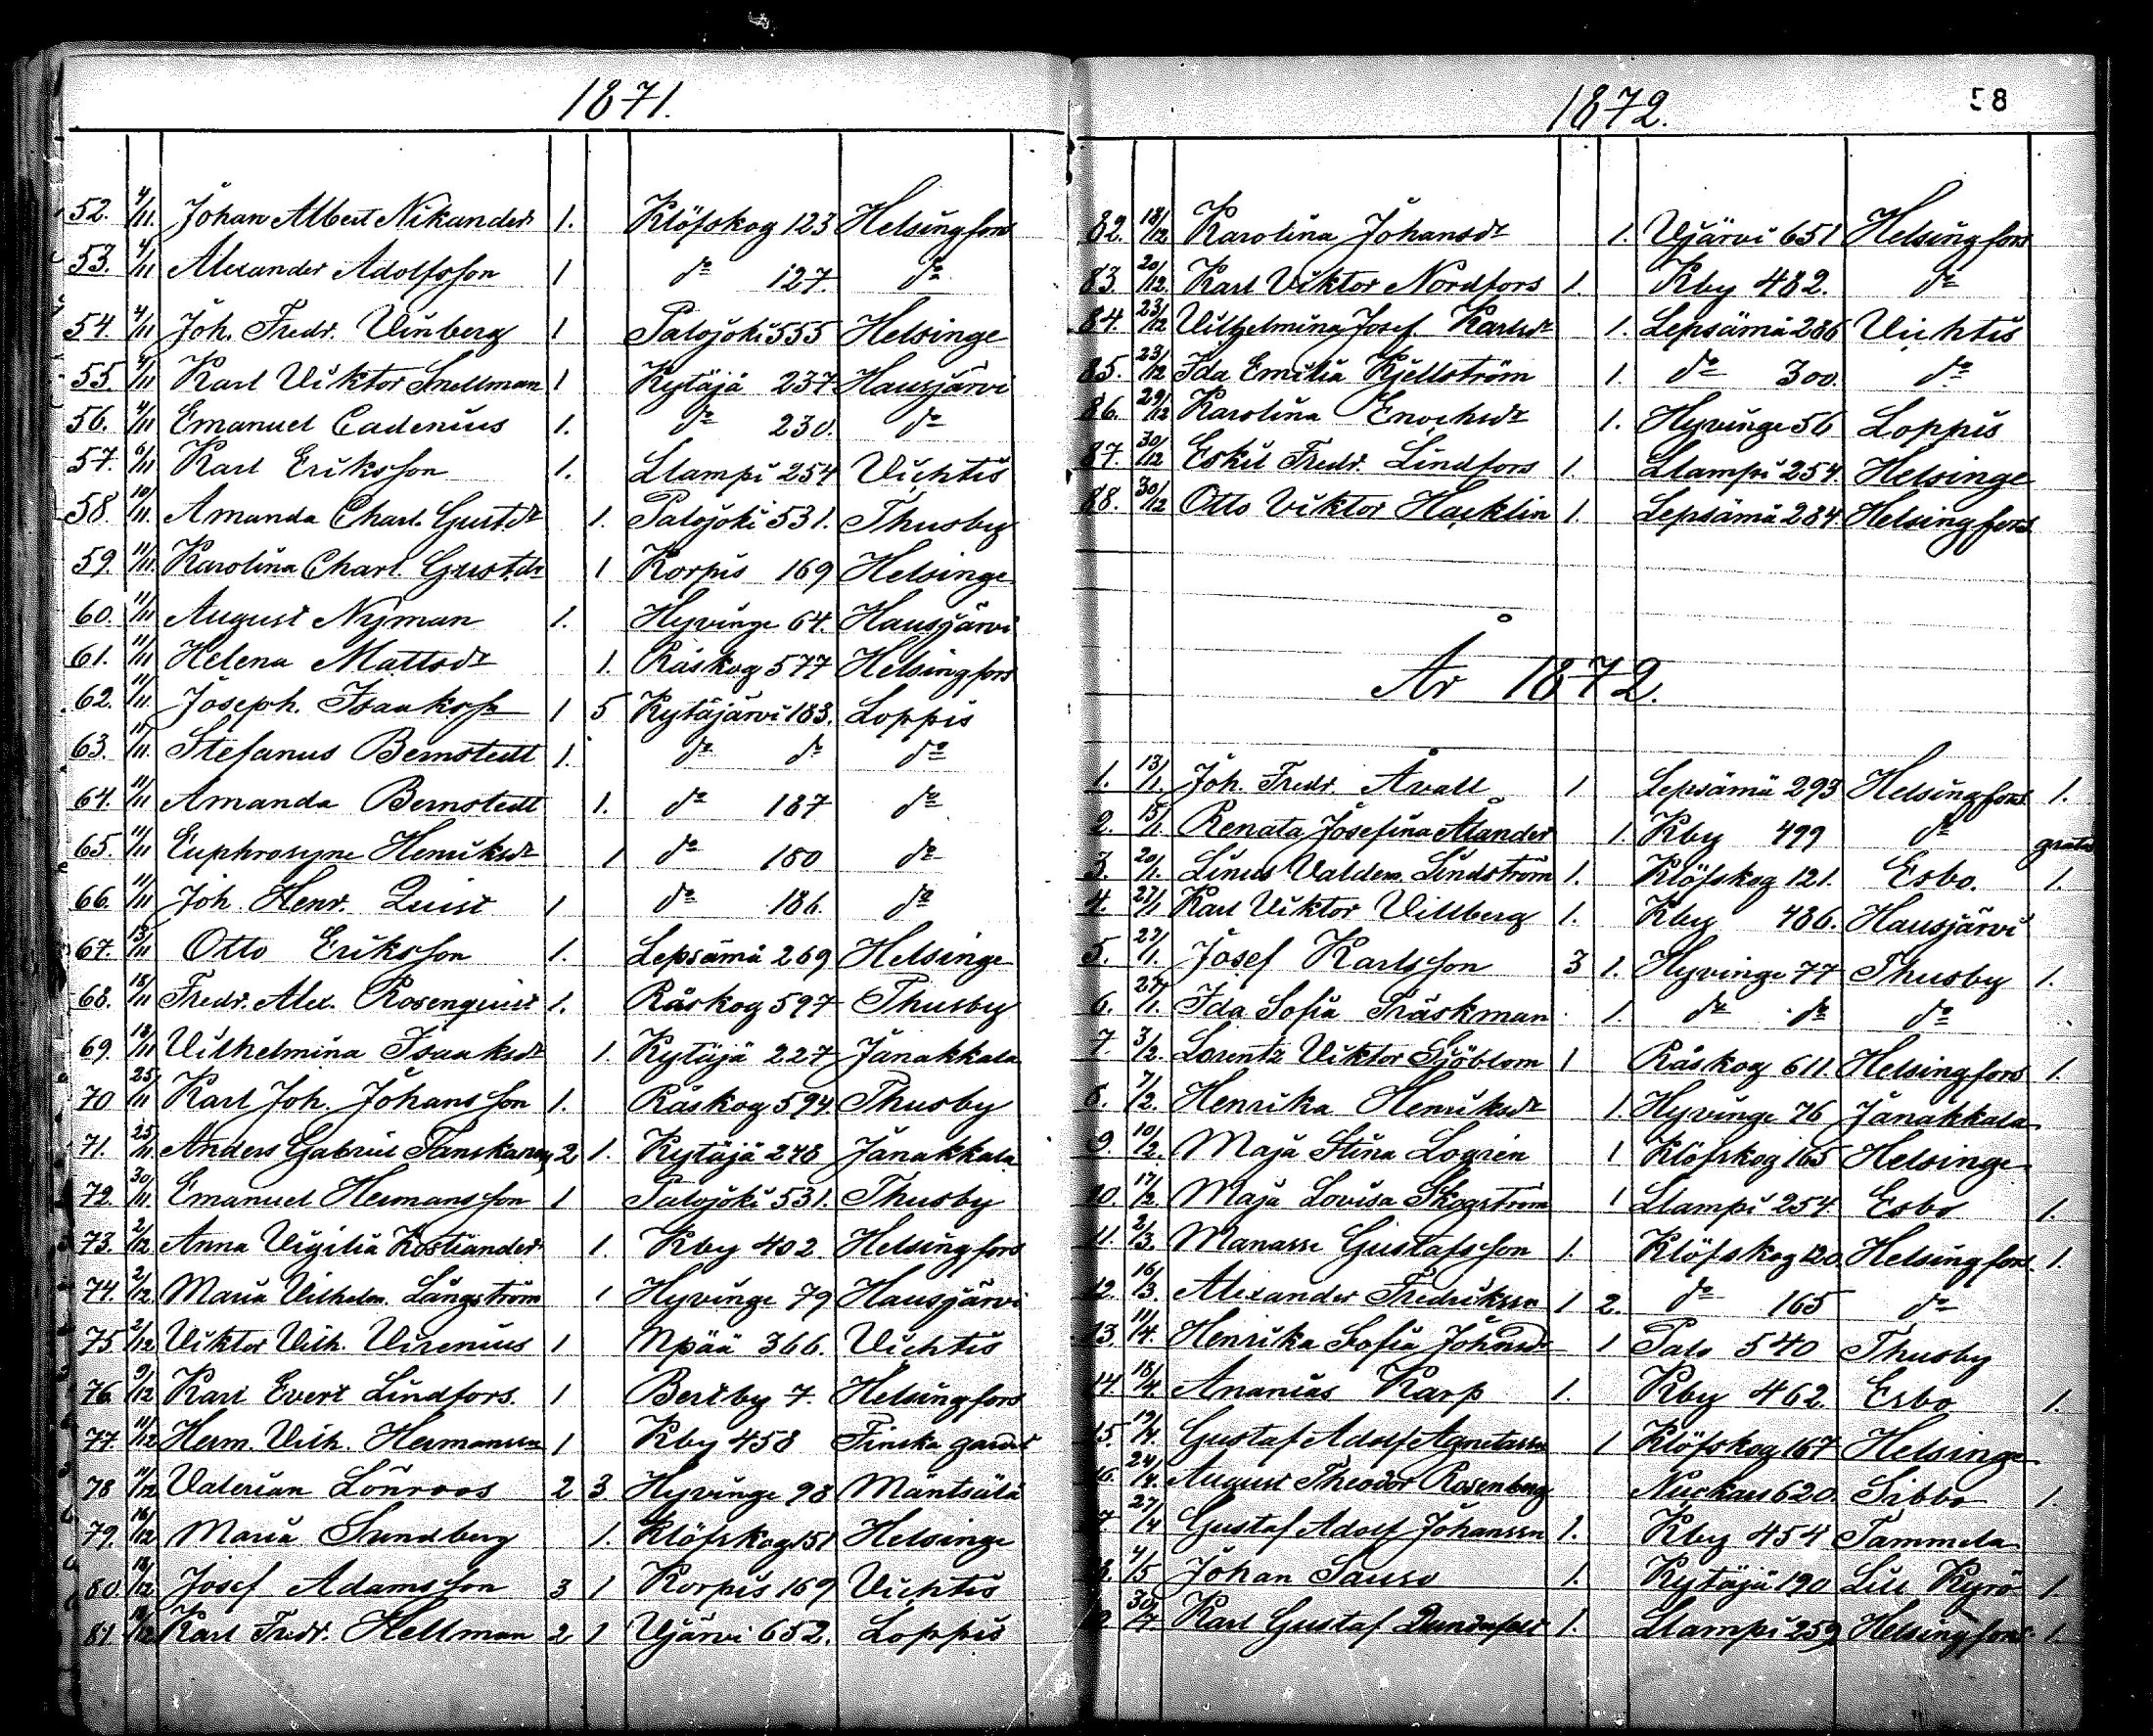 1871.
52. 4/11. Johan Albert Nikander 1. Klöfskog 123 Helsingfors
53. 4/11 Alexander Adolfsson 1 do 127. do
54. 4/11 Joh. Fredr. Vinberg 1 Palojoki 555 Helsinge
55. 4/11 Karl Viktor Snellman 1 Kytäjä 237 Hausjärvi
56. 4/11 Emanuel Cadenius 1. do 230. do
57. 6/11 Karl Eriksson 1. Llampi 254 Vichtis
58. 10/11. Amanda Charl. Gustdr 1. Palojoki 531. Thusby
59. 11/11. Karolina Charl. Gustdr 1 Korpis 169 Helsinge
60. 11/11 August Nyman 1. Hyvinge 64. Hausjärvi
61. 11/11 Helena Mattsdr 1. Råskog 577 Helsingfors
62. 11/11. Joseph. Isaakss 1 5 Kytäjärvi 183. Loppis
63. 11/11. Stefanus Bernstedt 1. do do do
64. 11/11 Amanda Bernstedt 1. do 187 do
65. 11/11 Euphrosyne Henriksdr 1 do 180 do
66. 11/11 Joh. Henr. Quist 1 do 186. do
67. 13/11 Otto Eriksson 1. Lepsämä 269 Helsinge
68. 18/11 Fredr. Alex. Rosenquist 1. Råskog 597 Thusby
69. 18/11 Vilhelmina Isaaksdr 1. Kytäjä 227 Janakkala
70 25/11 Karl Joh. Johansson 1. Råskog 594. Thusby
71. 25/11 Anders Gabriel 2 1. Kytäjä 248 Janakkala
72. 30/11. Emanuel Hermansson 1 Palojoki 531. Thusby
73. 2/12. Anna Vigilia Kostiander 1. Kby 402 Helsingfors
74. 2/12 Maria Vilhelm. Långström 1 Hyvinge 79 Hausjärvi
75. 2/12 Viktor Vilh. Virenius 1 Npää 366. Vichtis
76. 9/12 Karl Evert Lindfors. 1 Bertby 7. Helsingfors
77. 11/12 Herm. Vilh. Hermanssn 1 Kby 458 Finska gardet
78 11/12 Valerian Lönroos 2 3. Hyvinge 98 Mäntsälä
79. 16/12 Maria Sundberg 1. Klöfskog 151 Helsinge
80. 18/12. Josef Adamsson 3 1 Korpis 169 Vichtis
81. Karl Fredr. Hellman 2 1 Ujärvi 652. Loppis
1872. 58
82. 18/12 Karolina Johansdr 1. Ujärvi 651 Helsingfors
83 20/12. Karl Viktor Nordfors 1. Kby 482. do
84. 23/12 Vilhelmina Josef. Karlsdr 1. Lepsämä 286 Vichtis
85. 23/12 Ida Emilia Kjellström 1. do 300. do
86. 29/12 Karolina Enochsdr 1. Hyvinge 56 Loppis
87. 30/12 Eskil Fredr. Lindfors 1. Llampi 254. Helsinge
88. 30/12 Otto Viktor Hacklin 1. Lepsämä 284 Helsingfors
År 1872.
1. 13/1. Joh. Fredr. Åvall 1 Lepsämä 293 Helsingfors 1.
2. 15/1. Renata Josefina Ålander 1. Kby 499 do gratis
3. 20/1. Linus Valdem. Lindström 1. Klöfskog 121. Esbo. 1.
4. 27/1 Karl Viktor Villberg 1. Kby 486. Hausjärvi
5. 27/1. Josef Karlsson 3 1. Hyvinge 77 Thusby 1.
6. 27/1. Ida Sofia Träskman 1. do do do
7. 3/2. Lorentz Viktor Sjöblom 1 Råskog 611. Helsingfors 1.
8. 7/2. Henrika Henriksdr 1. Hyvinge 76 Janakkala
9. 10/2. Maja Stina Logrén 1 Klöfskog 165 Helsinge
10. 17/2. Maja Lovisa Skogström 1 Llampi 254. Esbo 1.
11. 2/3. Manasse Gustafsson 1. Klöfskog 120. Helsingfors 1.
12 16/3. Alexander Fredrikssn 1 2. do 165 do
13. 11/4. Henrika Sofia Johnsdr 1 Palo 540 Thusby
14. 18/4. Ananias Karp 1. Kby 462. Esbo 1.
15. 19/4. Gustaf Adolf 1 Klöfskog 167 Helsinge
16. 24/4. August Theodor Rosenberg Nuckars 620. Sibbo 1.
27/4 Gustaf Adolf Johanssn 1. Kby 454 Tammela
4/5 Johan Sauso 1. Kytäjä 190 Lill Kyro 1.
30/7. Karl Gustaf 1. Llampi 259 Helsingfors 1.